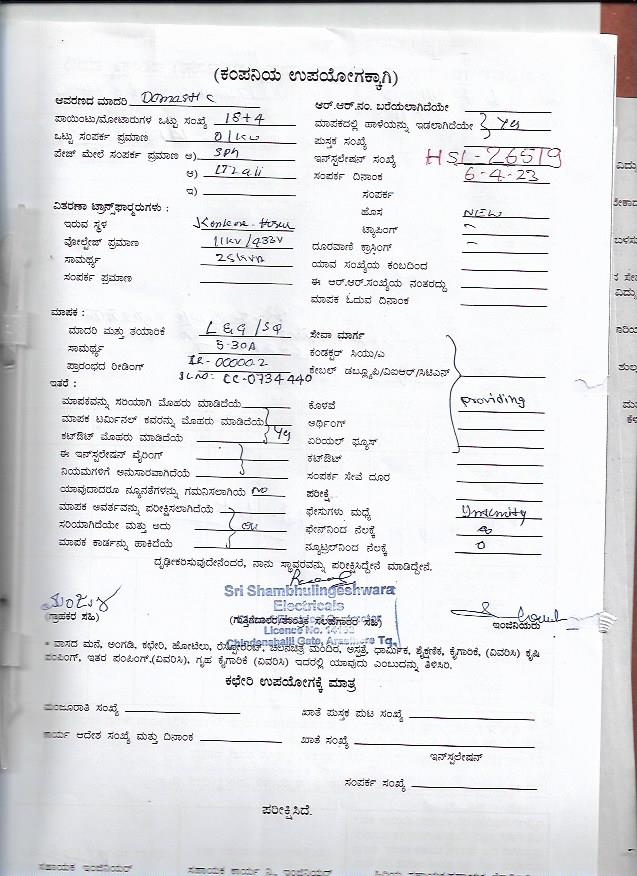 (ಕಂಪನಿಯ ಉಪಯೋಗಕ್ಕಾಗಿ)
ಆವರಣದ ಮಾದರಿ Domastic ಆರ್.ಆರ್.ನಂ. ಬರೆಯಲಾಗಿದೆಯೇ
ಪಾಯಿಂಟು/ಮೋಟಾರುಗಳ ಒಟ್ಟು ಸಂಖ್ಯೆ 18+4 ಮಾಪಕದಲ್ಲಿ ಹಾಳೆಯನ್ನು ಇಡಲಾಗಿದೆಯೇ Yes
ಒಟ್ಟು ಸಂಪರ್ಕ ಪ್ರಮಾಣ 01KW ಪುಸ್ತಕ ಸಂಖ್ಯೆ
ಪೇಜ್ ಮೇಲೆ ಸಂಪರ್ಕ ಪ್ರಮಾಣ ಅ) SPh ಇನ್‌ಸ್ಟಲೇಷನ್ ಸಂಖ್ಯೆ HSL-26519
ಆ) ಸಂಪರ್ಕ ದಿನಾಂಕ 6-4-23
ಇ) ಸಂಪರ್ಕ
ವಿತರಣಾ ಟ್ರಾನ್ಸ್‌ಫಾರ್ಮರುಗಳು : ಹೊಸ NEW
ಇರುವ ಸ್ಥಳ ಟ್ಯಾಪಿಂಗ್ -
ವೋಲ್ಟೇಜ್ ಪ್ರಮಾಣ 11KV/433V ದೂರವಾಣಿ ಕ್ರಾಸಿಂಗ್ -
ಸಾಮರ್ಥ್ಯ 25KVA ಯಾವ ಸಂಖ್ಯೆಯ ಕಂಬದಿಂದ
ಸಂಪರ್ಕ ಪ್ರಮಾಣ ಈ ಆರ್.ಆರ್.ಸಂಖ್ಯೆಯ ನಂತರದ್ದು
ಮಾಪಕ ಓದುವ ದಿನಾಂಕ
ಮಾಪಕ :
ಮಾದರಿ ಮತ್ತು ತಯಾರಿಕೆ L&G/SP ಸೇವಾ ಮಾರ್ಗ
ಸಾಮರ್ಥ್ಯ 5-30A ಕಂಡಕ್ಟರ್ ಸಿಯು/ಎ
ಪ್ರಾರಂಭದ ರೀಡಿಂಗ್ IR-00000.2 ಕೇಬಲ್ ಡಬ್ಲ್ಯೂಪಿ/ವಿಐಆರ್/ಸಿಟಿಎಸ್
SL NO: CC-0734440
ಇತರೆ :
ಮಾಪಕವನ್ನು ಸರಿಯಾಗಿ ಮೊಹರು ಮಾಡಿದೆಯೆ ಕೊಳವೆ providing
ಮಾಪಕ ಟರ್ಮಿನಲ್ ಕವರನ್ನು ಮೊಹರು ಮಾಡಿದೆಯೆ ಆರ್ಥಿಂಗ್
ಕಟೌಟ್ ಮೊಹರು ಮಾಡಿದೆಯೆ Yes ಏರಿಯಲ್ ಫ್ಯೂಸ್
ಈ ಇನ್‌ಸ್ಟಲೇಷನ್ ವೈರಿಂಗ್ ಕಟೌಟ್
ನಿಯಮಗಳಿಗೆ ಅನುಸಾರವಾಗಿದೆಯೆ ಸಂಪರ್ಕ ಸೇವೆ ದೂರ
ಯಾವುದಾದರೂ ನ್ಯೂನತೆಗಳನ್ನು ಗಮನಿಸಲಾಗಿಯೆ NO ಪರೀಕ್ಷೆ
ಮಾಪಕ ಅವರ್ತವನ್ನು ಪರೀಕ್ಷಿಸಲಾಗಿದೆಯೆ ಫೇಸುಗಳು ಮಧ್ಯೆ
ಸರಿಯಾಗಿದೆಯೇ ಮತ್ತು ಅದು OK ಫೇಸ್‌ನಿಂದ ನೆಲಕ್ಕೆ
ಮಾಪಕ ಕಾರ್ಡನ್ನು ಹಾಕಿದೆಯೆ ನ್ಯೂಟ್ರಲ್‌ನಿಂದ ನೆಲಕ್ಕೆ 0
ದೃಢೀಕರಿಸುವುದೇನೆಂದರೆ, ನಾನು ಸ್ಥಾವರವನ್ನು ಪರೀಕ್ಷಿಸಿದ್ದೇನೆ ಮಾಡಿದ್ದೇನೆ.
Sri Shambhulingeshwara
Electricals
ಮಂಜುಳ
(ಗ್ರಾಹಕರ ಸಹಿ) (ಗುತ್ತಿಗೆದಾರರ/ಹಾಯಕ ಸಲಹಾಗಾರರ ಸಹಿ) ಇಂಜಿನಿಯರು
Licence No.
Chindenahalli Gate, Arasikere Tq.
* ವಾಸದ ಮನೆ, ಅಂಗಡಿ, ಕಛೇರಿ, ಹೋಟೆಲು, ರೆಸ್ಟೋರೆಂಟ್, ಚಲನಚಿತ್ರ ಮಂದಿರ, ಆಸ್ಪತ್ರೆ, ಧಾರ್ಮಿಕ, ಶೈಕ್ಷಣಿಕ, ಕೈಗಾರಿಕೆ, (ವಿವರಿಸಿ) ಕೃಷಿ
ಪಂಪಿಂಗ್, ಇತರ ಪಂಪಿಂಗ್.(ವಿವರಿಸಿ), ಗೃಹ ಕೈಗಾರಿಕೆ (ವಿವರಿಸಿ) ಇದರಲ್ಲಿ ಯಾವುದು ಎಂಬುದನ್ನು ತಿಳಿಸಿರಿ.
ಕಛೇರಿ ಉಪಯೋಗಕ್ಕೆ ಮಾತ್ರ
ಮಂಜೂರಾತಿ ಸಂಖ್ಯೆ ಖಾತೆ ಪುಸ್ತಕ ಪುಟ ಸಂಖ್ಯೆ
ಕಾರ್ಯ ಆದೇಶ ಸಂಖ್ಯೆ ಮತ್ತು ದಿನಾಂಕ ಖಾತೆ ಸಂಖ್ಯೆ
ಇನ್‌ಸ್ಟಲೇಷನ್
ಸಂಪರ್ಕ ಸಂಖ್ಯೆ
ಪರೀಕ್ಷಿಸಿದೆ.